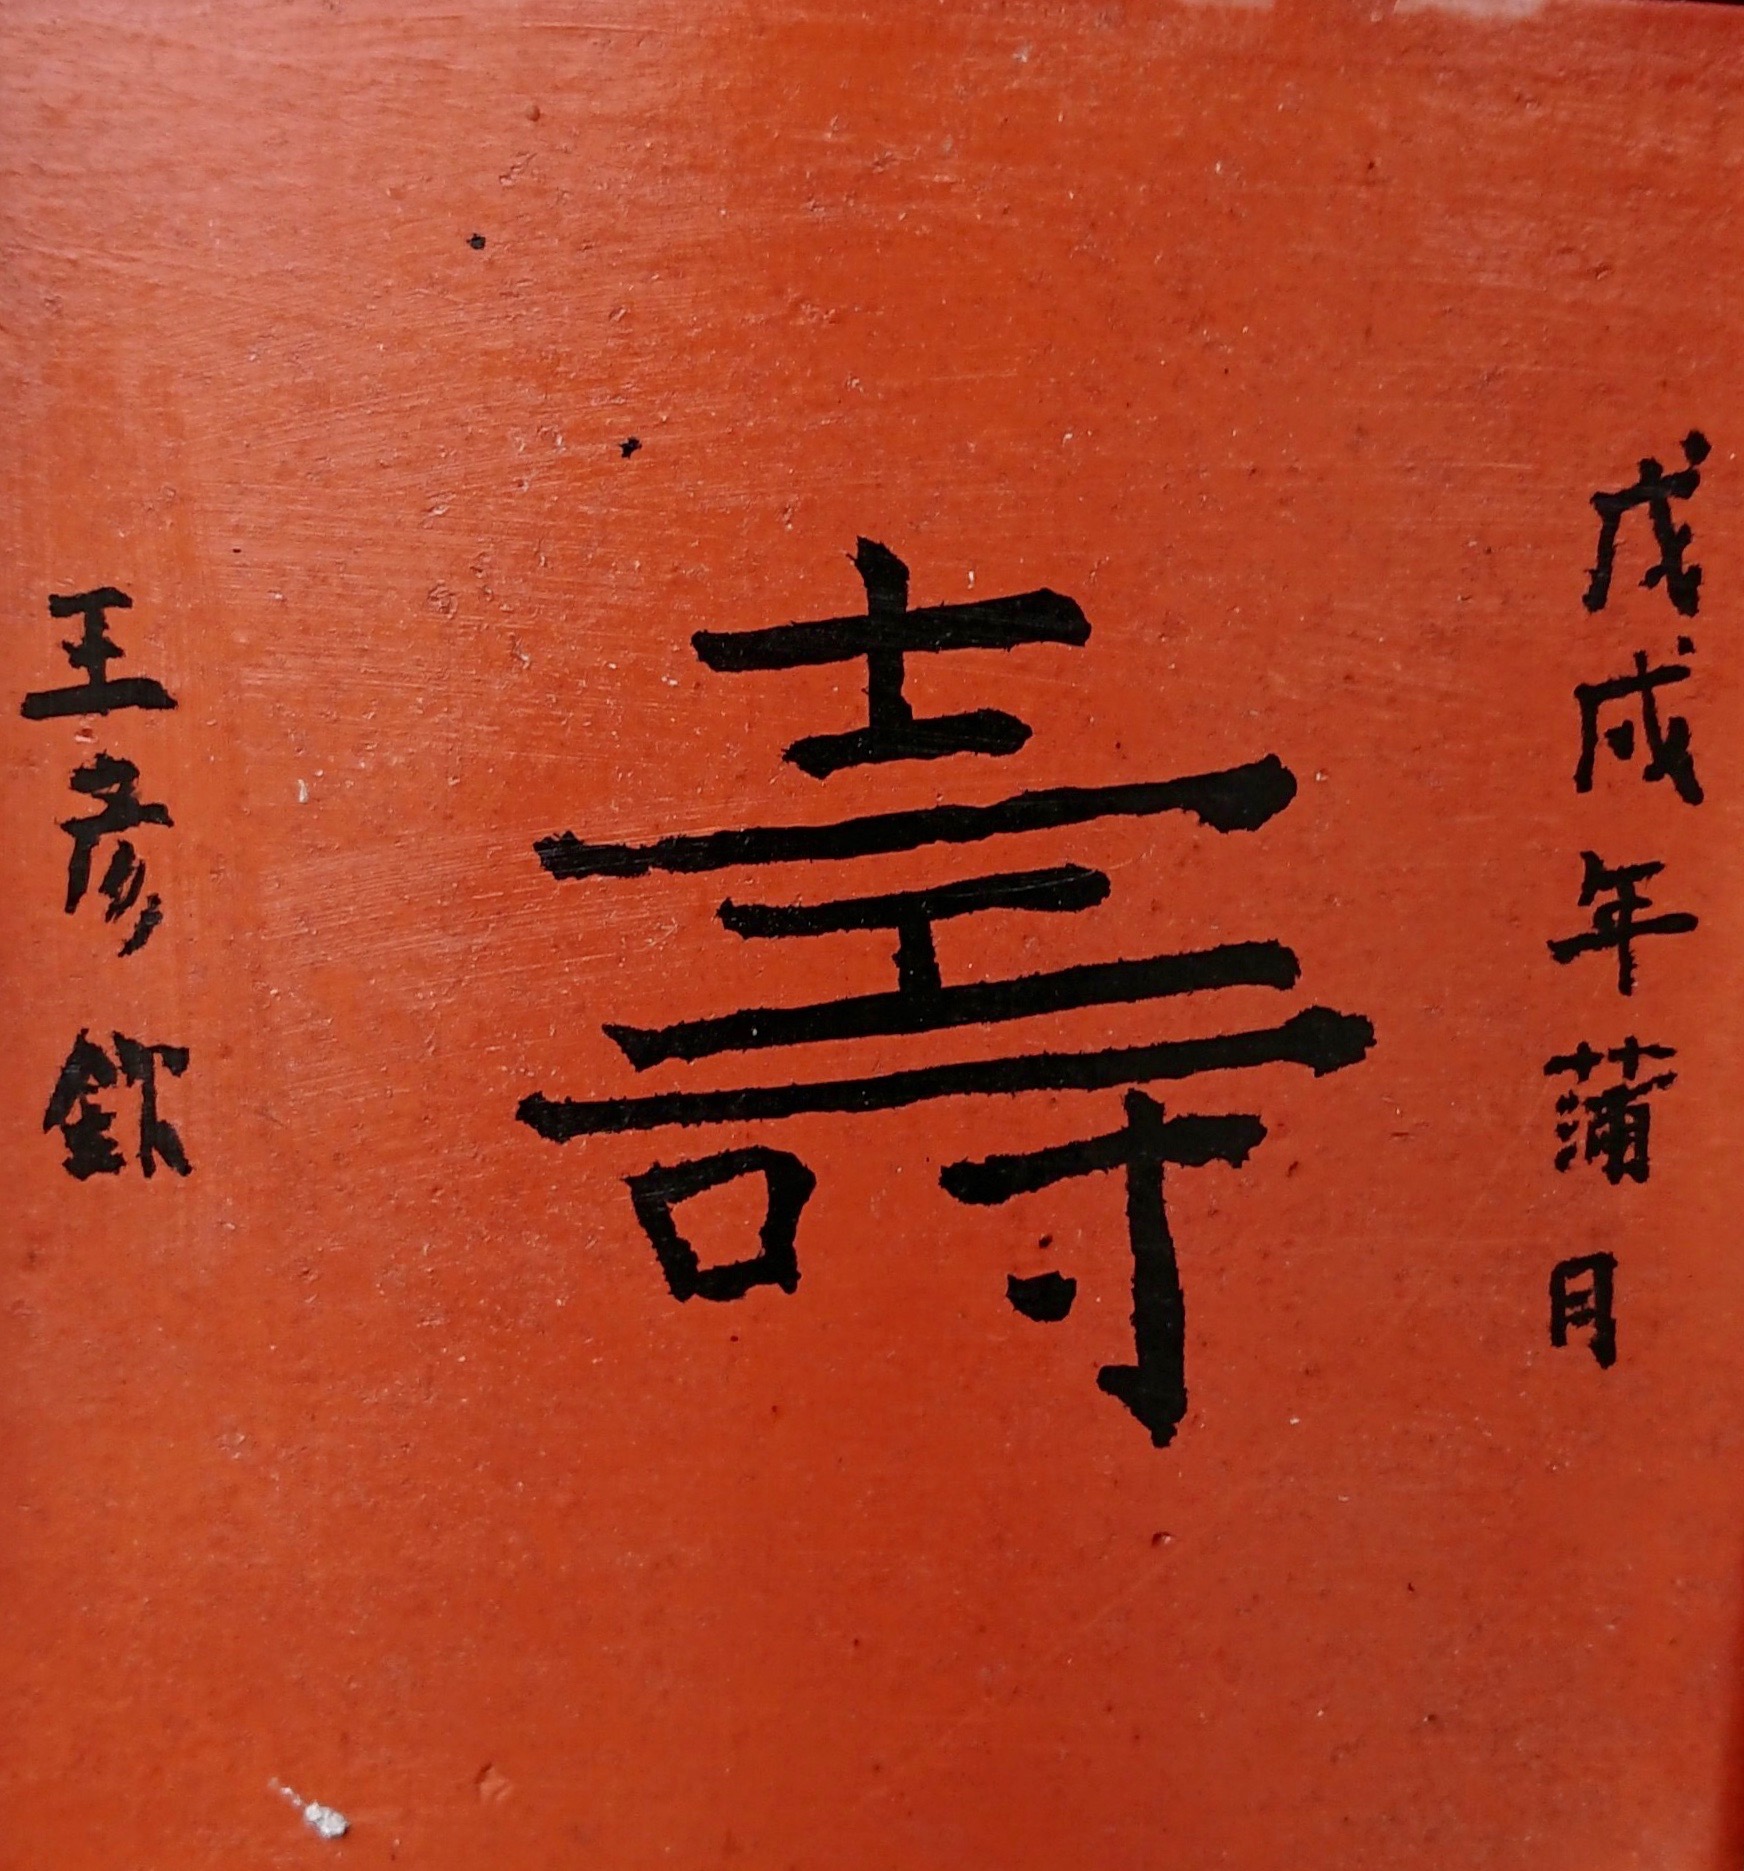 戊戌年蒲月
壽
王彥欽